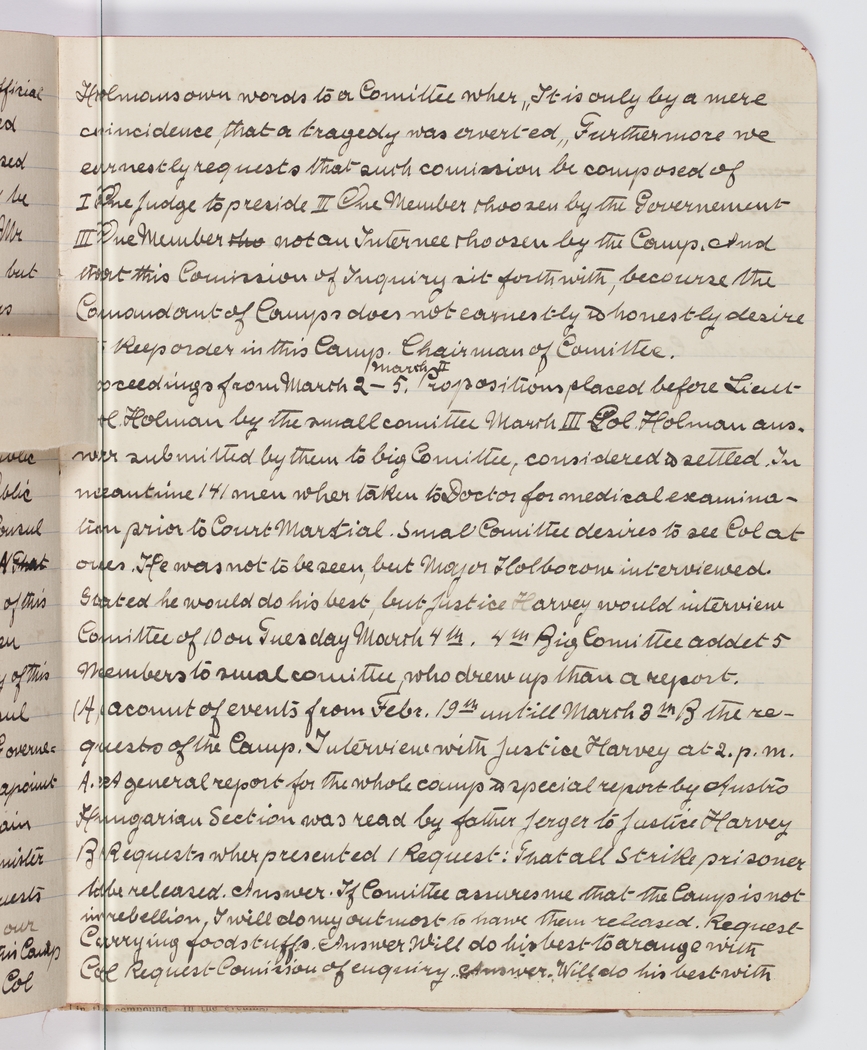 Holmans own words to a Comittee wher „It is only by a mere
coincidence, that a tragedy was avert-ed„ Furthermore we
earnestly requests that such comission be composed of
I One Judge to preside II One Member choosen by the Governement
III One Member who not an Internee choosen by the Camp. And
that this Comission of Inquiry sit forthwith, becourse the
Comandant of Camps does not earnestly & honestly desire
keep order in this Camp. Chairman of Comittee.
March II
oceedings from March 2 – 5. Propositions placed before Lieut-
ol. Holman by the small comittee March III Col. Holman ans-
wer submitted by them to big Comittee, considered & settled. In
meantime 141 men wher taken to Doctor for medical examina-
tion prior to Court Martial. Smal Comittee desires to see Col at
ones. He was not to be seen, but Major Holborow interviewed.
Stated he would do his best, but Justice Harvey would interview
Comittee of 10 on Tuesday March 4th. 4th Big Comittee addet 5
Members to smal comittee, who drew up than a report.
(A) acount of events from Febr. 19th untill March 3th B the re-
quests of the Camp. Interview with Justice Harvey at 2. p. m.
A. A general report for the whole camp & special report by Austro
Hungarian Section was read by father Jerger to Justice Harvey
B Requests wher presented 1 Request: That all Strike prisoner
to be released. Answer. If Comittee assures me that the Camp is not
in rebellion, I will do my outmost to have them released. Request
Carrying foodstuffs. Answer Will do his best to arange with
Col Request Comission of enquiry. Answer. Will do his best with
fficial
ed
sed
be
Mr
but
ublic
onsul
That
of this
y of this
Governe-
apoint
ain
nister
uests
our
this Camp
Col